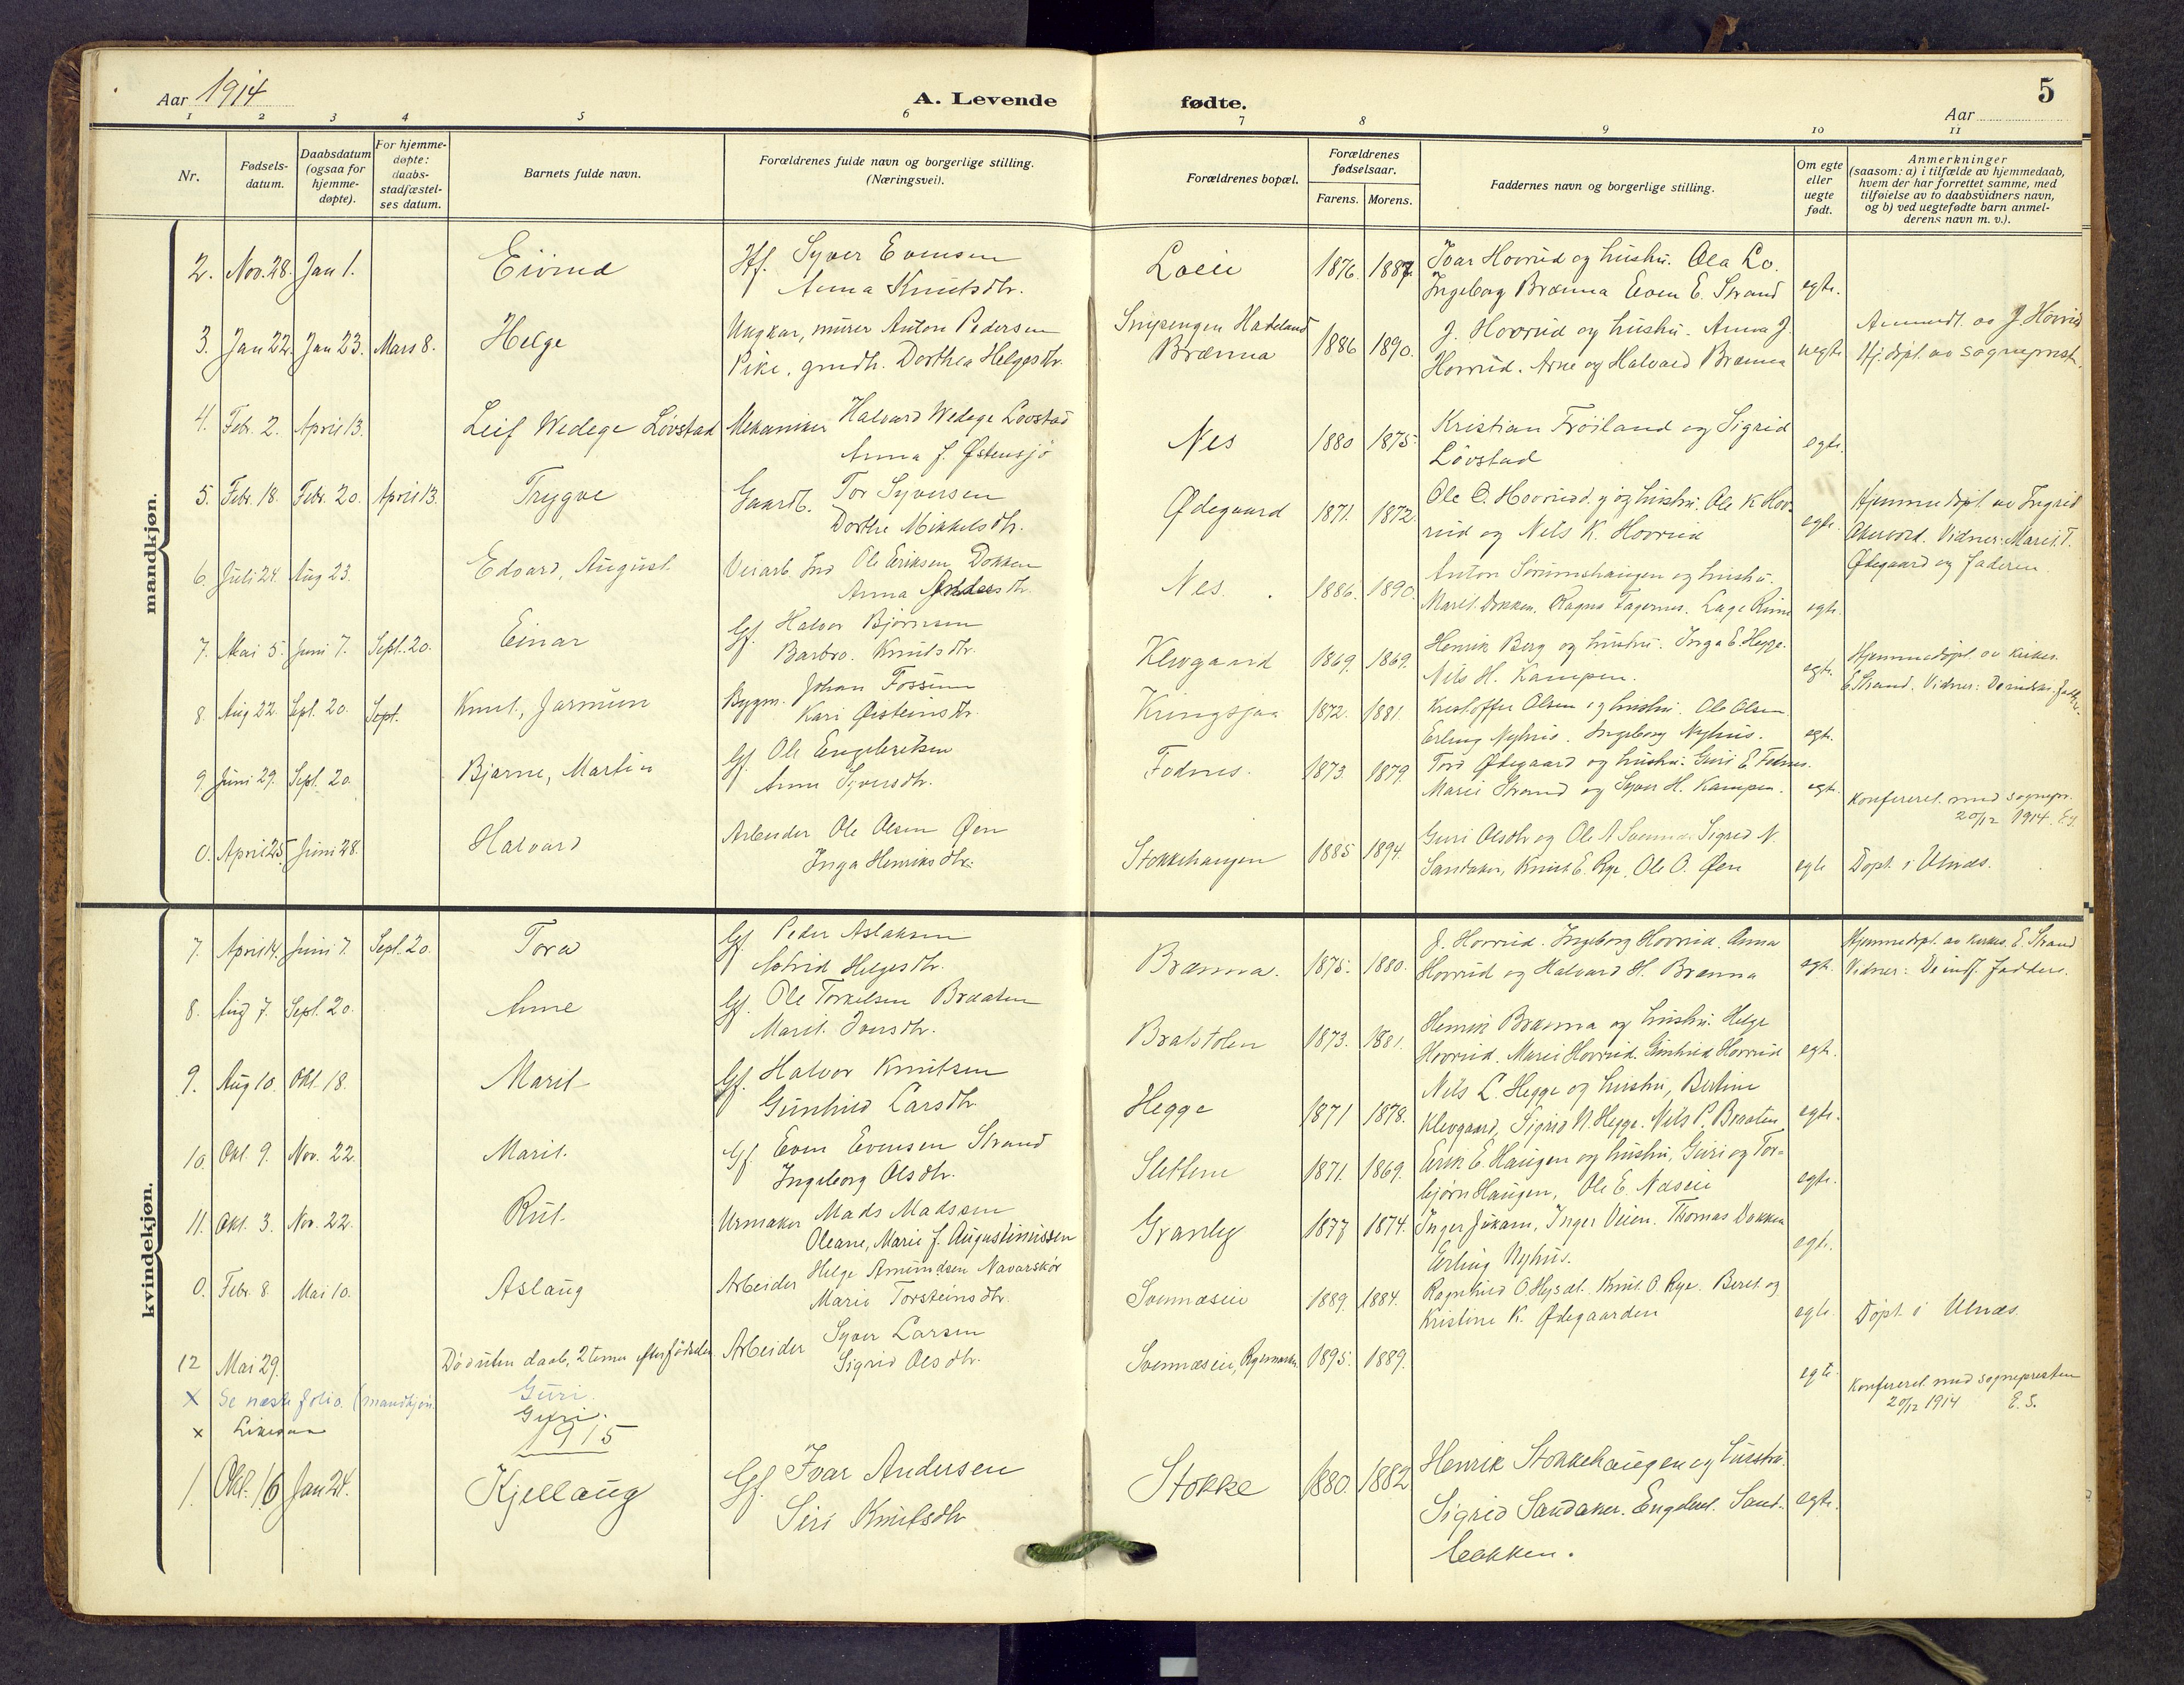 Aar 1914
A. Levende fødte.
5
Aar
1 2 3 4 5 6 7 8 9 10 11
Nr.
Fødsels-
datum.
Daabsdatum
(ogsaa for
hjemme-
døpte).
For hjemme-
døpte:
daabs-
stadfæstel-
ses datum.
Barnets fulde navn.
Forældrenes fulde navn og borgerlige stilling.
(Næringsvei).
Forældrenes bopæl.
Forældrenes
fødselsaar.
Farens. Morens.
Faddernes navn og borgerlige stilling.
Om egte
eller
uegte
født.
Anmerkninger
(saasom: a) i tilfælde av hjemmedaab,
hvem der har forrettet samme, med
tilføielse av to daabsvidners navn,
og b) ved uegtefødte barn anmel-
derens navn m. v.).
mandkjøn.
2. Nov. 28. Jan 1. Eivind Syver Evensen 1876. 1887 Ivar Hovrud og hustru. Ola Lo.
Anna Knutsdtr. Ingeborg Brænna Even E. Strand egte.
3. Jan 22. Jan 23. Mars 8. Helge Ungkar, murer Anton Pedersen Hadeland J. Hovrud og hustru. Anna J. Anmeldt av J. Hovrud
Pike, grmdtr. Dorthea Helgesdtr. Brænna 1886 1890. Hovrud. Arne og Halvard Brænna uegte Hj. døpt av sogneprest.
4. Febr. 2. April 13. Leif Wedege Løvstad Mekaniker Halvard Wedege Løvstad Nes 1880 1875. Kristian Frøiland og Sigrid
Anna f. Østensjø Løvstad egte.
5. Febr. 18. Febr. 20. April 13. Trygve Gaardb. Tor Syversen Ødegaard 1871. 1872. Ole O. Hovrud og hustru. Ole K Hov- Hjemmedøpt av Ingrid
Dorthe Mikkelsdtr. rud og Nils K. Hovrud egte. Vidner: Marit T.
Ødegaard og faderen.
6. Juli 24. Aug 23. Edvard, August Veiarb. Ole Eriksen Dokken Nes. 1886. 1890. Anton Sørumshaugen og hustru.
Anna Andersdtr. Marit Dokken. Ragna Fagernes. egte.
7. Mai 5. Juni 7. Sept. 20. Einar Gf. Halvor Bjørnsen Klevgaard 1869. 1869. Henrik Berg og hustru. Inga E. Hegge. Hjemmedøpt av kirkes.
Barbro. Knutsdtr. Nils H. Kampen. egte. E. Strand. Vidner:
8. Aug 22. Sept. 20. Sept. Knut, Jarmun Bygm. Johan Fossum Kringsjaa 1872. 1881. Kristoffer Olsen og hustru. Ole Olsen
Kari Øisteinsdtr. Erling Nyhus. Ingeborg Nyhus. egte.
9 Juni 29. Sept. 20. Bjarne, Martin Gf. Ole Engebretsen Fodnes. 1873. 1879. Tord Ødegaard og hustru. Guri E. Fodnes.
Anna Syversdtr. Marie Strand og Syver H. Kampen. egte. Konfereret med sognepr.
20/12 1914. E.S.
0. April 25. Juni 28. Halvard Arbeider Ole Olsen Øen Stokkehaugen 1885 1894. Guri Olsdtr og Ole A Svennes. Sigrid N.
Inga Henriksdtr. Sandaker, Knut E. Rye. Ole O. Øen egte Døpt i Ulnæs.
kvindekjøn.
7. April 14. Juni 7. Sept. 20. Tora Gf. Peder Aslaksen Brænna. 1875. 1880. J. Hovrud. Ingeborg Hovrud. Anna Hjemmedøpt av kirkes. E. Strand
Astrid Helgesdtr. Hovrud og Halvard H. Brænna egte. Vidner: De indf. Faddere.
8. Aug 7. Sept. 20. Anne Gf. Ole Torkelsen Braaten Bratstolen 1873. 1881. Henrik Brænna og hustru. Helge
Marit Iversdtr. Hovrud. Marie Hovrud. Gunhild Hovrud egte.
9. Aug 10. Okt. 18. Marit Gf. Halvor Knutsen Hegge 1871 1878. Nils L. Hegge og hustru, Bertine
Gunhild Larsdtr Klevgaard, Sigrid N. Hegge. Nils P. Braaten egte.
10. Okt. 9. Nov. 22. Marit. Gf. Even Evensen Strand Slettene 1871. 1869. Erik E. Haugen og hustru, Guri og Tor-
Ingeborg Olsdtr. bjørn Haugen, Ole E. Næseie egte.
11. Okt. 3. Nov. 22. Rut. Urmaker Mads Madssen Granly 1877 1874. Inger Jukam, Inger Veien. Thomas Dokken
Oleane, Marie f. Augustinussen Erling Nyhus. egte.
0. Febr. 8 Mai 10. Aslaug Arbeider Helge Amundsen Navarskør Svennæseie 1889. 1884. Ragnhild O. Knut O. Rye. Berit og
Marie Torsteinsdtr. Kristine K. Ødegaarden egte. Døpt i Ulnæs.
12 Mai 29. Død uten daab, 2 timer efter fødselen Arbeider Syver Larsen Svennæseie, 1895. 1889. egte.
Sigrid Olsdtr. Konfereret med sognepresten
20/12 1914 E. S.
x Se næste folio. (mandkjøn. Guri.
x Likesaa Guri.
1915
1. Okt. 16 Jan 24. Kjellaug Gf. Ivar Andersen Stokke 1880. 1882 Henrik Stokkehaugen og hustru.
Siri Knutsdtr Sigrid Sandaker. Engebret Sand- egte.
bakken.